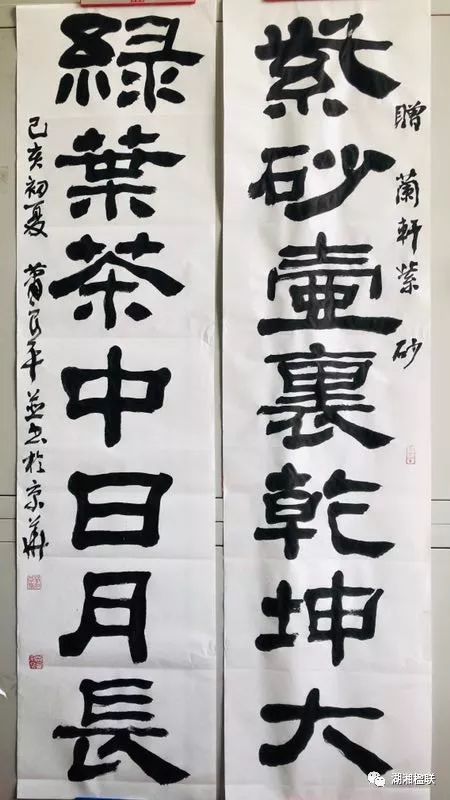 贈 蘭軒紫砂
紫砂壺裏乾坤大
緑葉茶中日月長
己亥初夏 蕭良平并书於京華
湖湘楹联